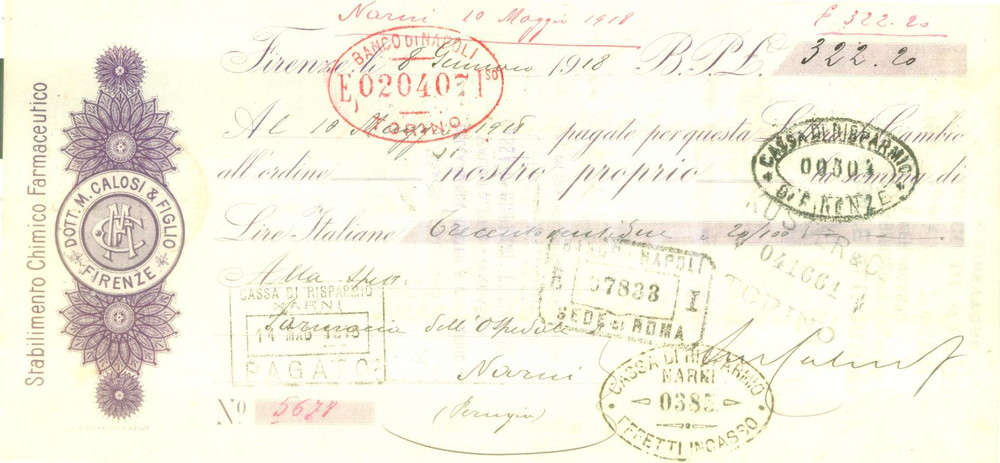 Narni 10 Maggio 1918 £ 322.20
Firenze, li 8 Gennaio 1918 B. P. £. 322.20
BANCO DI NAPOLI
E, 020407 I
TORINO
Al 10 Maggio 1918 pagate per questa Lettera di Cambio
all'ordine nostro proprio la somma di
CASSA DI RISPARMIO
00304
DI FIRENZE
Lire Italiane Trecentoventidue e 20/100
BANCO NAPOLI
B 07833 I
SEDE DI ROMA
041661
TORINO
Alla Spett.
CASSA DI RISPARMIO
NARNI
14 MAG 1918
PAGATO
Farmacia dell'Ospedale
Narni
(Perugia)
CASSA DI RISPARMIO
NARNI
0383
EFFETTI INCASSO
No 5678
Stabilimento Chimico Farmaceutico
DOTT. M. CALOSI & FIGLIO
FIRENZE